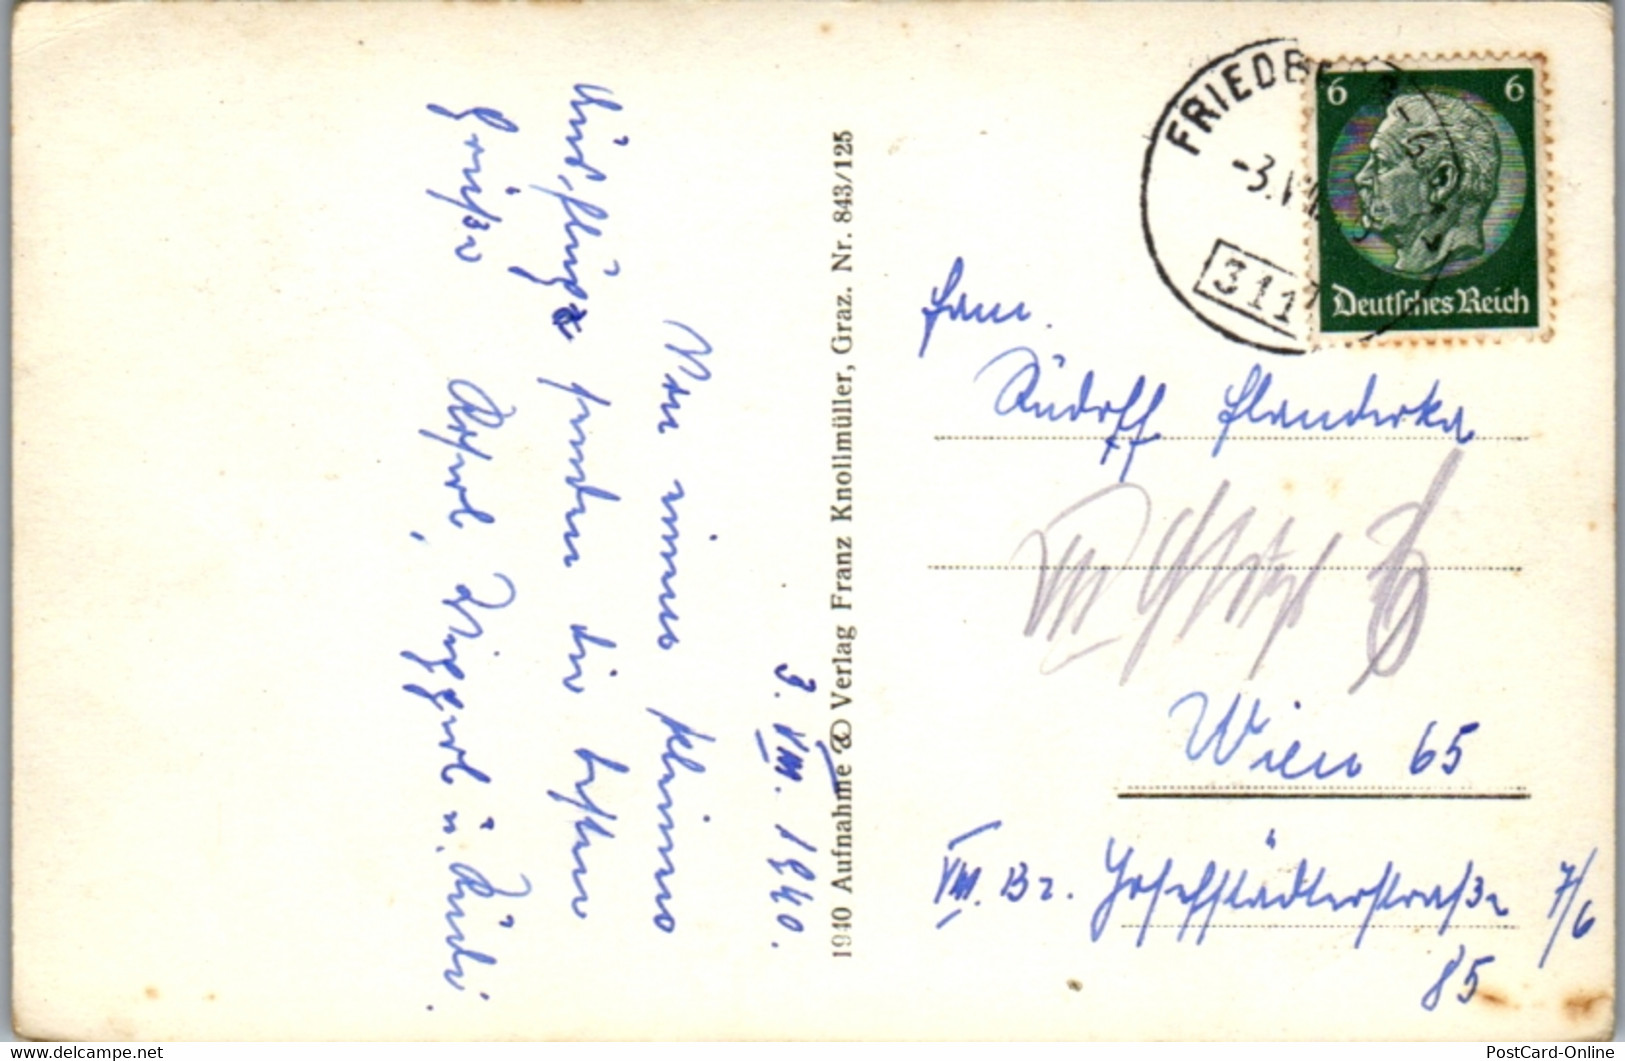 3. VIII. 1940.
Von einem kleinen
Ausfluge senden die besten
Grüße
u. Rudi.
1940 Aufnahme & Verlag Franz Knollmüller, Graz. Nr. 843/125
FRIEDBERG
-3.VII
311
6 6
Deutsches Reich
Fam.
Rudolf Flanderka
Wien 65
VIII. Bz. Josefstädterstraße 7/6
85
PostCard-Online
www.delcampe.net